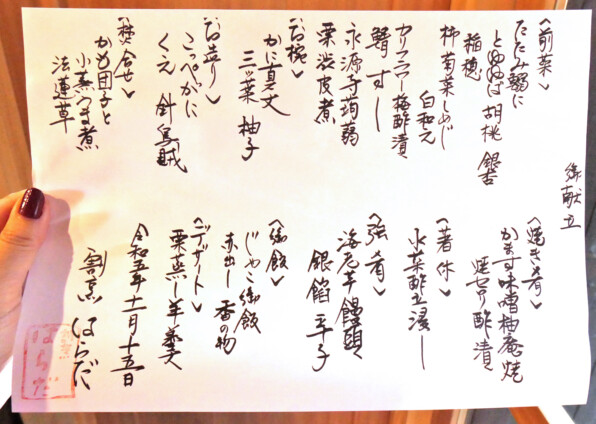 御献立
〈前菜〉
たたみ鰯に
とゆゆば 胡桃 銀杏
稲穂
柿菊菜しめじ
白和え
カリフラワー梅酢漬
鯖すし
永源寺蒟蒻
栗渋皮煮
〈お椀〉
かに真丈
三ツ葉 柚子
〈お造り〉
こっぺがに
くえ 針烏賊
〈焚合せ〉
かも団子と
小蕪うま煮
法蓮草
〈焼き肴〉
かます味噌柚庵焼
セロリ酢漬
〈箸休〉
水菜酢立浸し
〈強肴〉
海老芋饅頭
銀餡 辛子
〈御飯〉
じゃこ御飯
赤出し 香の物
〈デザート〉
栗蒸し羊羹
令和五年十一月十五日
割烹 はらだ
はらだ